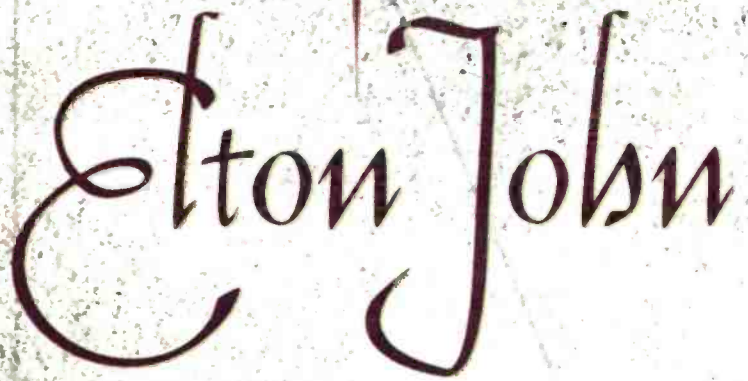 Elton John